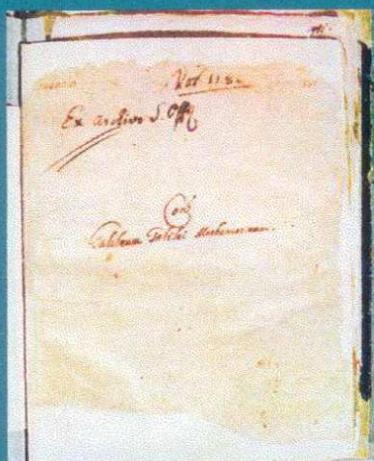 Vol 1181
Ex archivo S. Offij
Con̄
Galileum Galilei Mathematicum